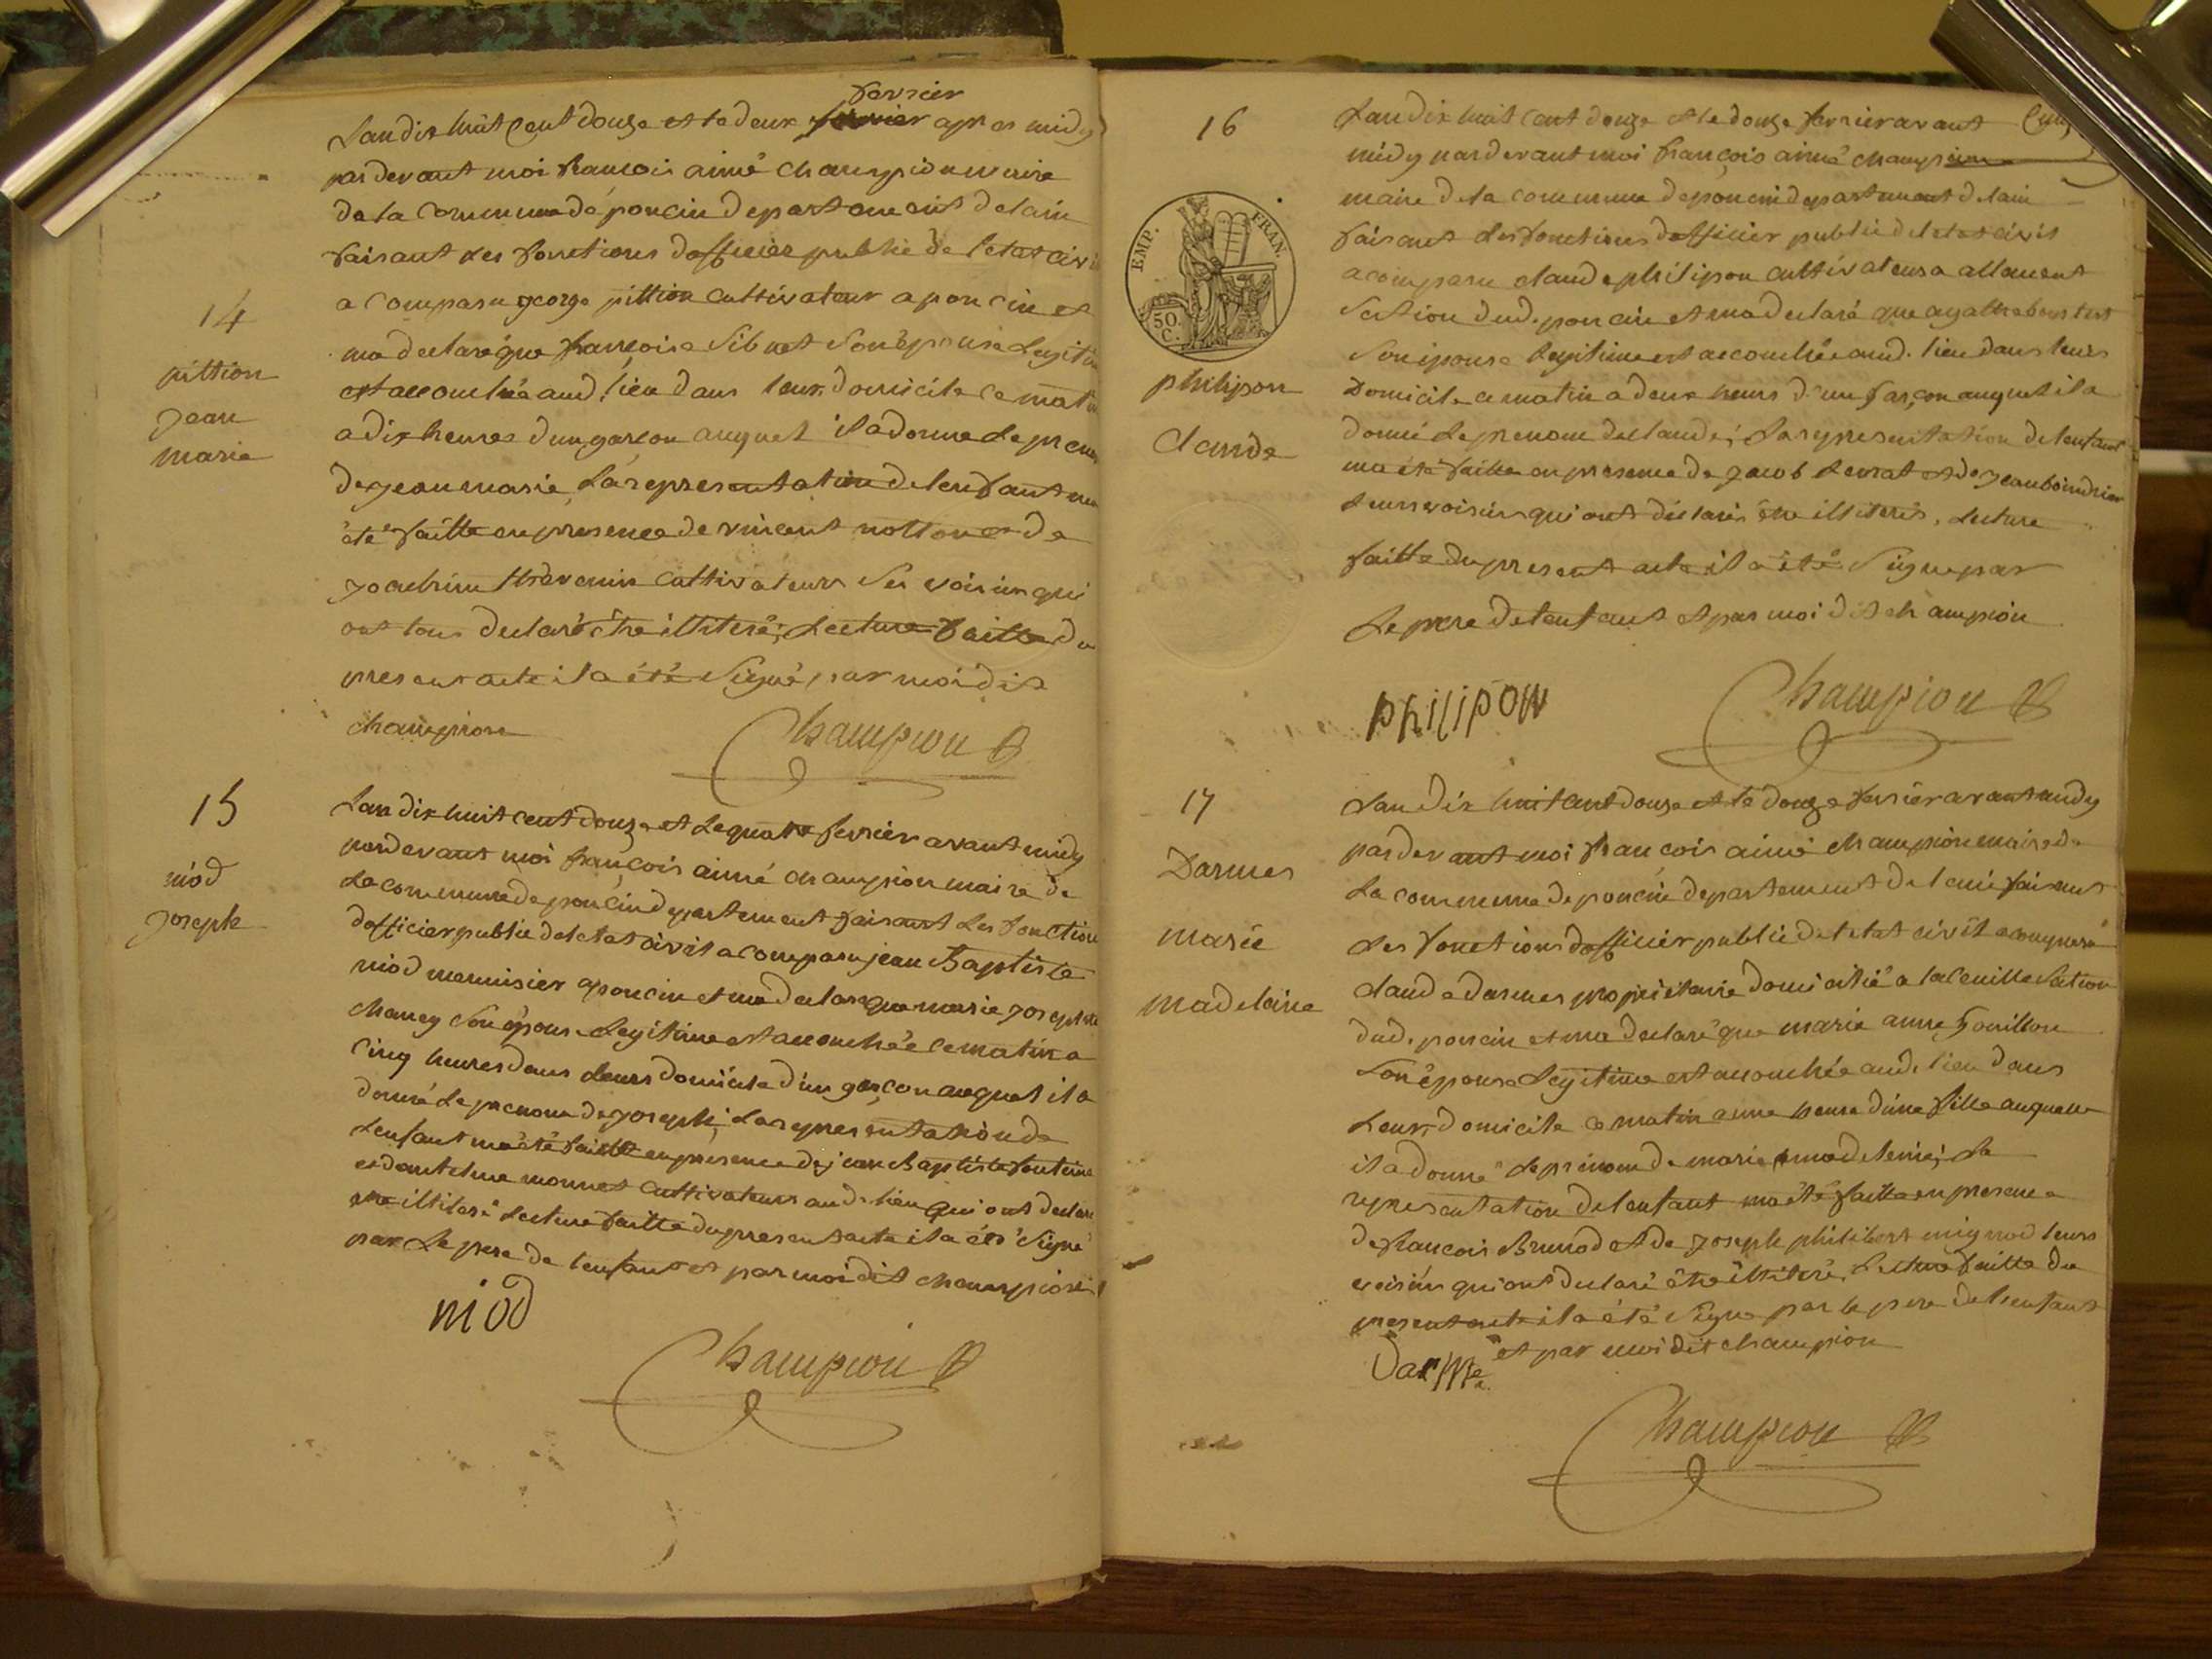 fevrier
Lan dix huit Cent douze et le deux apres midy
pardevant moi francois aimé champion maire
de la Commune de poncin departement de lain
faisant les fonctions dofficier public de letat civil
14
a comparu george pittion cultivateur a poncin et
ma declaré que françoise Sibuet Son épouse Legitime
pittion
est accouchée aud. lieu dans leur domicile ce matin
jean
a dix heures dun garcon auquel il a donné le prenom
marie
de jean marie, La representation de lenfant ma
été faitte en presence de vincent notton et de
joachim thevenin cultivateurs Ses voisins qui
ont tous declaré être illiteré; Lecture faitte du
present acte il a été Signé par moi dit
champion
Champion
15
Lan dix huit cent douze et le quatre fevrier avant midy
pardevant moi françois aimé champion maire de
niod
La commune de poncin departement faisant les fonctions
joseph
dofficier public de letat civil a comparu jean Baptiste
niod menuisier a poncin et ma declaré que marie josephte
chaney Son épouse Legitime est accouchée ce matin a
cinq heures dans leurs domicile d'un garçon auquel il a
donné le prenom de joseph; La representation de
Lenfant ma été faitte en presence de jean Baptiste fontaine
et danthelme monnet cultivateurs aud. lieu qui ont declaré
etre illiteré Lecture faitte du present acte il a été Signé
par Le pere de lenfant et par moi dit champion
niod
Champion
16
Lan dix huit cent douze et le douze fevrier avant
midy pardevant moi françois aimé champion
EMP. FRAN.
50. C.
maire de la commune de poncin departement de lain
faisant les fonctions dofficier public de letat civil
a comparu claude philipon cultivateur a allement
Section dud. poncin et ma declaré que agathe
Son épouse Legitime est accouchée aud. lieu dans leurs
philipon
Domicile ce matin a deux heures d'un garçon auquel il a
claude
donné Le prenom de claude; La representation de lenfant
ma été faitte en presence de jacob et de jean boindrier
Leurs voisins qui ont déclarés être illiterés, Lecture
faitte du present acte il a été Signé par
Le pere de lenfant et par moi dit champion
philipon
Champion
17
Lan dix huit cent douze et le douze fevrier avant midy
pardevant moi françois aimé champion maire de
Darmes
La commune de poncin departement de lain faisant
marie
les fonctions dofficier public de letat civil a comparu
madelaine
claude darmes proprietaire domicilié a la Section
dud. poncin et ma declaré que marie anne gouillon
Son épouse Legitime est accouchée aud. lieu dans
Leurs domicile ce matin a une heure d'une fille auquelle
il a donné le prénom de marie madeleine; La
representation de lenfant ma été faitte en presence
de françois Brunod et de joseph philibert mignod leurs
voisins qui ont declaré être illiteré, Lecture faitte du
present acte il a été Signé par le pere de lenfant
et par moi dit champion
Darme
Champion